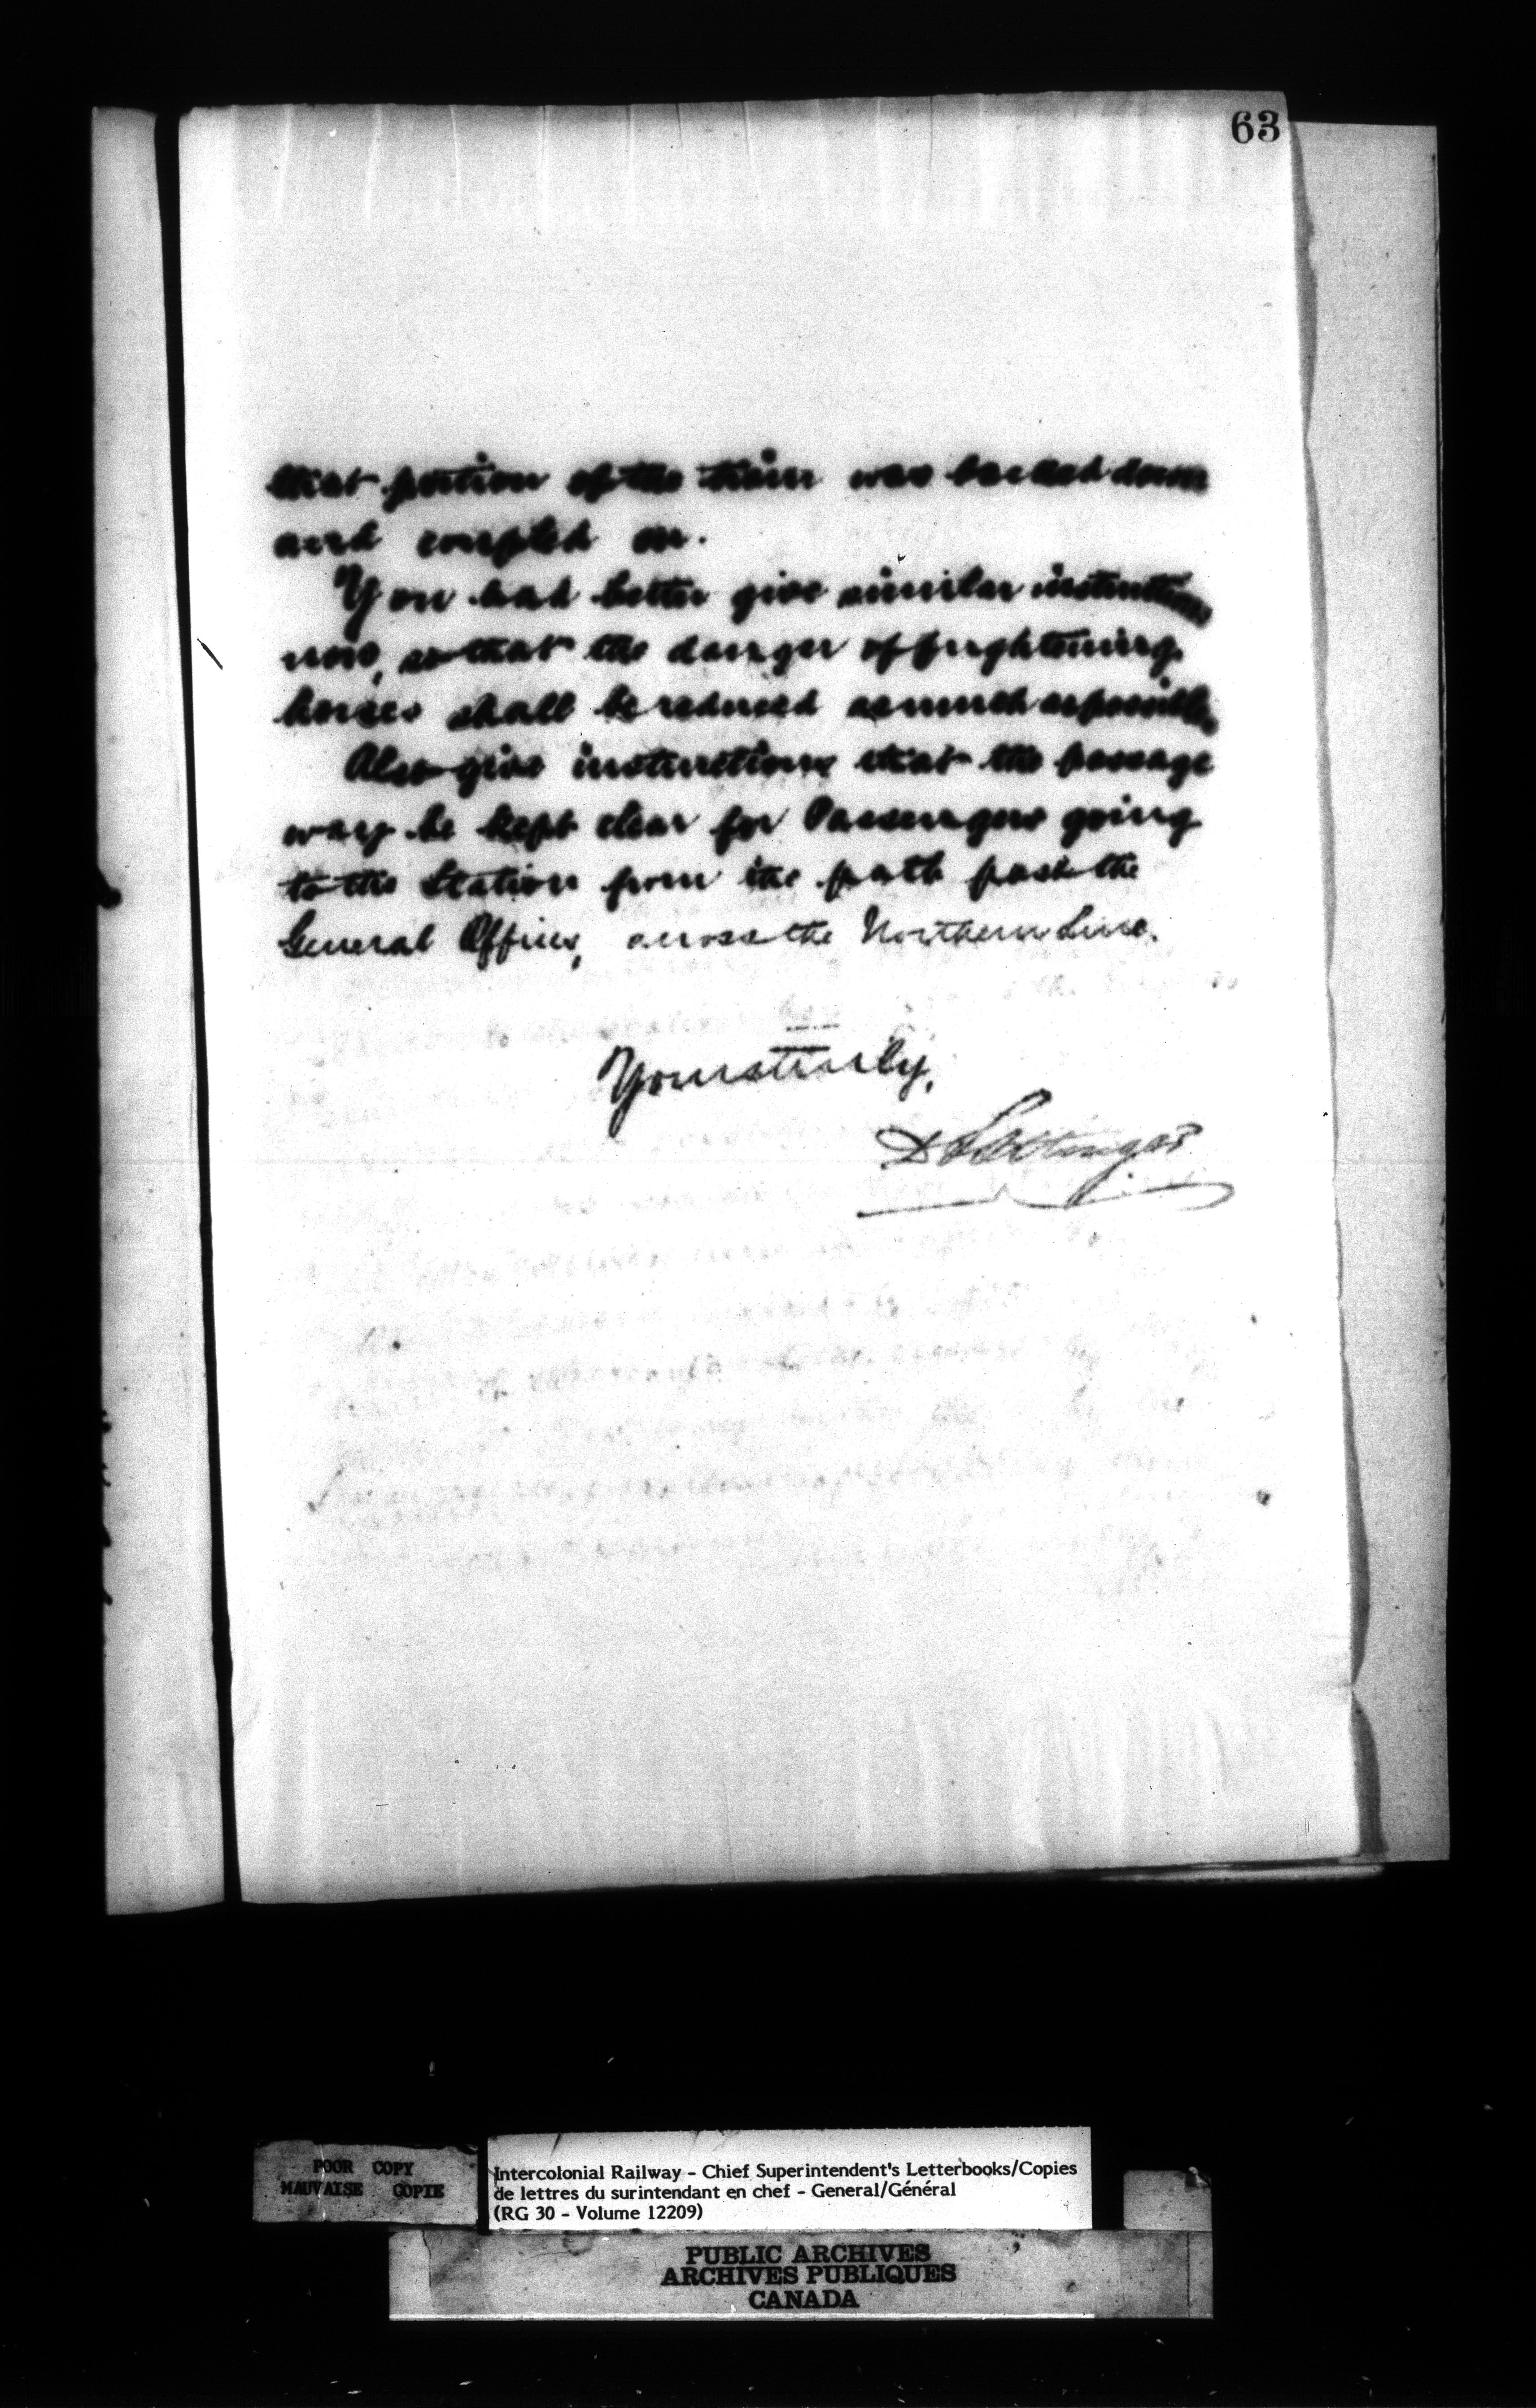 63
that portion of the train was backed down
and coupled on.
You had better give similar instructions
now, so that the danger of frightening
horses shall be reduced as much as possible.
Also give instructions that the passage
way be kept clear for Passengers going
to the Station from the path past the
General Offices, across the Northern Line.
Yours truly,
D Pottinger
POOR COPY
MAUVAISE COPIE
Intercolonial Railway - Chief Superintendent's Letterbooks/Copies
de lettres du surintendant en chef - General/Général
(RG 30 - Volume 12209)
PUBLIC ARCHIVES
ARCHIVES PUBLIQUES
CANADA